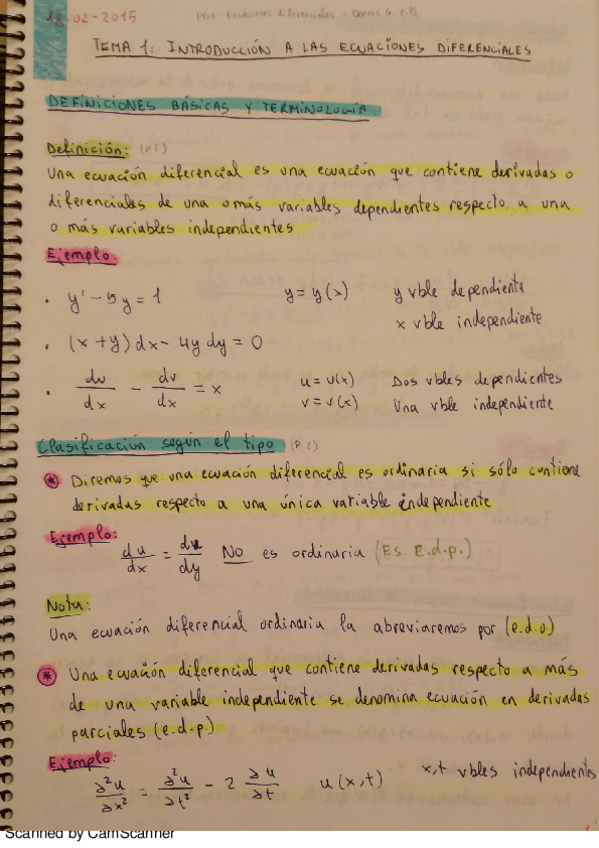 18-02-2015
PDF: Ecuaciones diferenciales -
TEMA 1: INTRODUCCIÓN A LAS ECUACIONES DIFERENCIALES
DEFINICIONES BÁSICAS Y TERMINOLOGÍA
Definición: (P2)
Una ecuación diferencial es una ecuación que contiene derivadas o
diferenciales de una o más variables dependientes respecto a una
o más variables independientes
Ejemplo:
· y' - 5y = 1 y = y(x) y vble dependiente
x vble independiente
· (x + y) dx - 4y dy = 0
· du/dx - dv/dx = x u = u(x) Dos vbles dependientes
v = v(x) Una vble independiente
Clasificación según el tipo (P2)
* Diremos que una ecuación diferencial es ordinaria si sólo contiene
derivadas respecto a una única variable independiente
Ejemplo:
du/dx = du/dy NO es ordinaria (Es e.d.p.)
Nota:
Una ecuación diferencial ordinaria la abreviaremos por (e.d.o)
* Una ecuación diferencial que contiene derivadas respecto a más
de una variable independiente se denomina ecuación en derivadas
parciales (e.d.p.)
Ejemplo:
∂²u/∂x² = ∂²u/∂t² - 2 ∂u/∂t u(x,t) x,t vbles independientes
Scanned by CamScanner